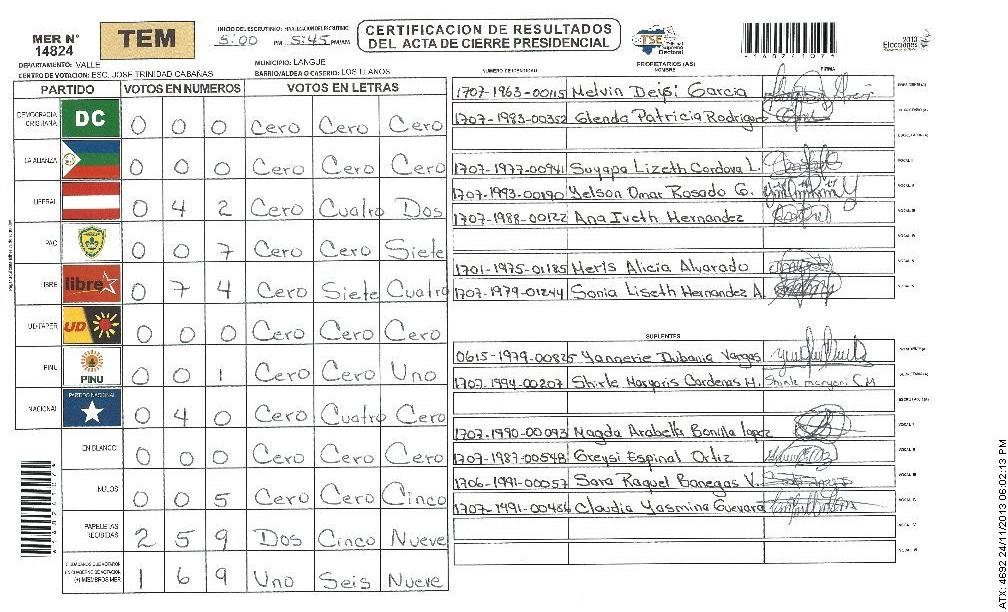 MER N° 14824
TEM
INICIO DEL ESCRUTINIO: FINALIZACION DEL ESCRUTINIO
5:00 PM 5:45 PM/AM
CERTIFICACION DE RESULTADOS
DEL ACTA DE CIERRE PRESIDENCIAL
TSE Tribunal Supremo Electoral
2013 Elecciones
DEPARTAMENTO: VALLE
MUNICIPIO: LANGUE
CENTRO DE VOTACION: ESC. JOSE TRINIDAD CABAÑAS
BARRIO/ALDEA O CASERIO: LOS LLANOS
PARTIDO VOTOS EN NUMEROS VOTOS EN LETRAS
DEMOCRACIA CRISTIANA DC 0 0 0 Cero Cero Cero
LA ALIANZA 0 0 0 Cero Cero Cero
LIBERAL 0 4 2 Cero Cuatro Dos
PAC 0 0 7 Cero Cero Siete
LIBRE libre 0 7 4 Cero Siete Cuatro
UD/FAPER UD 0 0 0 Cero Cero Cero
PINU PINU 0 0 1 Cero Cero Uno
NACIONAL PARTIDO NACIONAL 0 4 0 Cero Cuatro Cero
EN BLANCO 0 0 0 Cero Cero Cero
NULOS 0 0 5 Cero Cero Cinco
PAPELETAS RECIBIDAS 2 5 9 Dos Cinco Nueve
CIUDADANOS QUE VOTARON EN CUADERNO DE VOTACION (+) MIEMBROS MER 1 6 9 Uno Seis Nueve
PROPIETARIOS (AS)
NUMERO DE IDENTIDAD NOMBRE FIRMA
1707-1963-00115 Melvin Deysi Garcia PRESIDENTE(A)
1707-1983-00352 Glenda Patricia Rodrigue
SECRETARIO(A)
1707-1977-00941 Suyapa Lizeth Cordova L. VOCAL I
1707-1993-00190 Yelson Omar Rosado G. VOCAL II
1707-1988-00122 Ana Iveth Hernandez VOCAL III
VOCAL IV
1701-1975-01185 Meris Alicia Alvarado VOCAL V
1707-1979-01244 Sonia Liseth Hernandez A.
SUPLENTES
0615-1979-00825 Yannerie Dubania Vargas
1707-1994-00207 Shirle Maryoris Cardenas M. Shirle maryori CM
1707-1990-00093 Magda Arabella Bonilla lopez VOCAL I
1707-1987-00548 Greysi Espinal Ortiz VOCAL II
1706-1991-00057 Sara Raquel Banegas V. VOCAL III
1707-1991-00466 Claudia Yasmina Guevara
VOCAL V
VOCAL VI
ATX: 4692 24/11/2013 06:02:13 PM